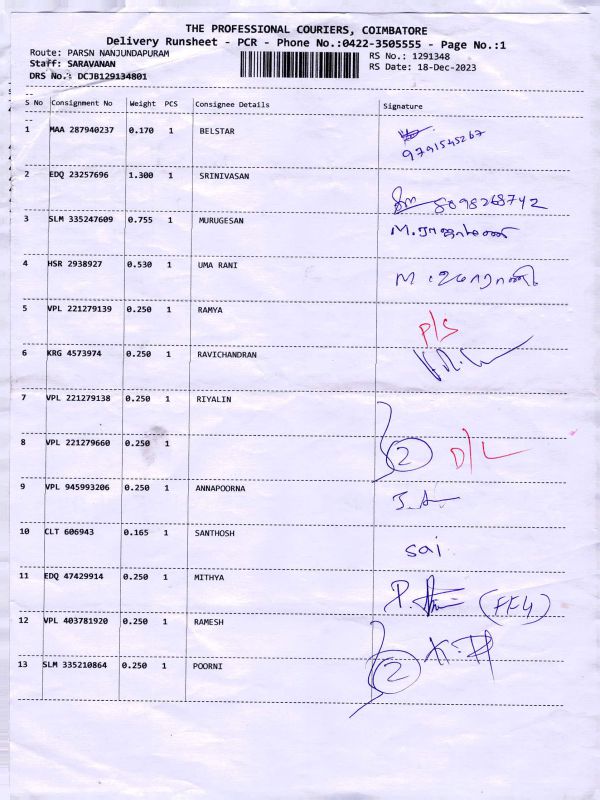 THE PROFESSIONAL COURIERS, COIMBATORE
Delivery Runsheet - PCR - Phone No.:0422-3505555 - Page No.:1
Route: PARSN NANJUNDAPURAM
Staff: SARAVANAN
DRS No.: DCJB129134801
RS No.: 1291348
RS Date: 18-Dec-2023
S No Consignment No Weight PCS Consignee Details Signature
1 MAA 287940237 0.170 1 BELSTAR
9791545267
2 EDQ 23257696 1.300 1 SRINIVASAN
8098268742
3 SLM 335247609 0.755 1 MURUGESAN
4 HSR 2938927 0.530 1 UMA RANI
M. உமாராணி
5 VPL 221279139 0.250 1 RAMYA
P/S
6 KRG 4573974 0.250 1 RAVICHANDRAN
7 VPL 221279138 0.250 1 RIYALIN
8 VPL 221279660 0.250 1
2 D/L
9 VPL 945993206 0.250 1 ANNAPOORNA
10 CLT 606943 0.165 1 SANTHOSH
sai
11 EDQ 47429914 0.250 1 MITHYA
(FF4)
12 VPL 403781920 0.250 1 RAMESH
13 SLM 335210864 0.250 1 POORNI
2